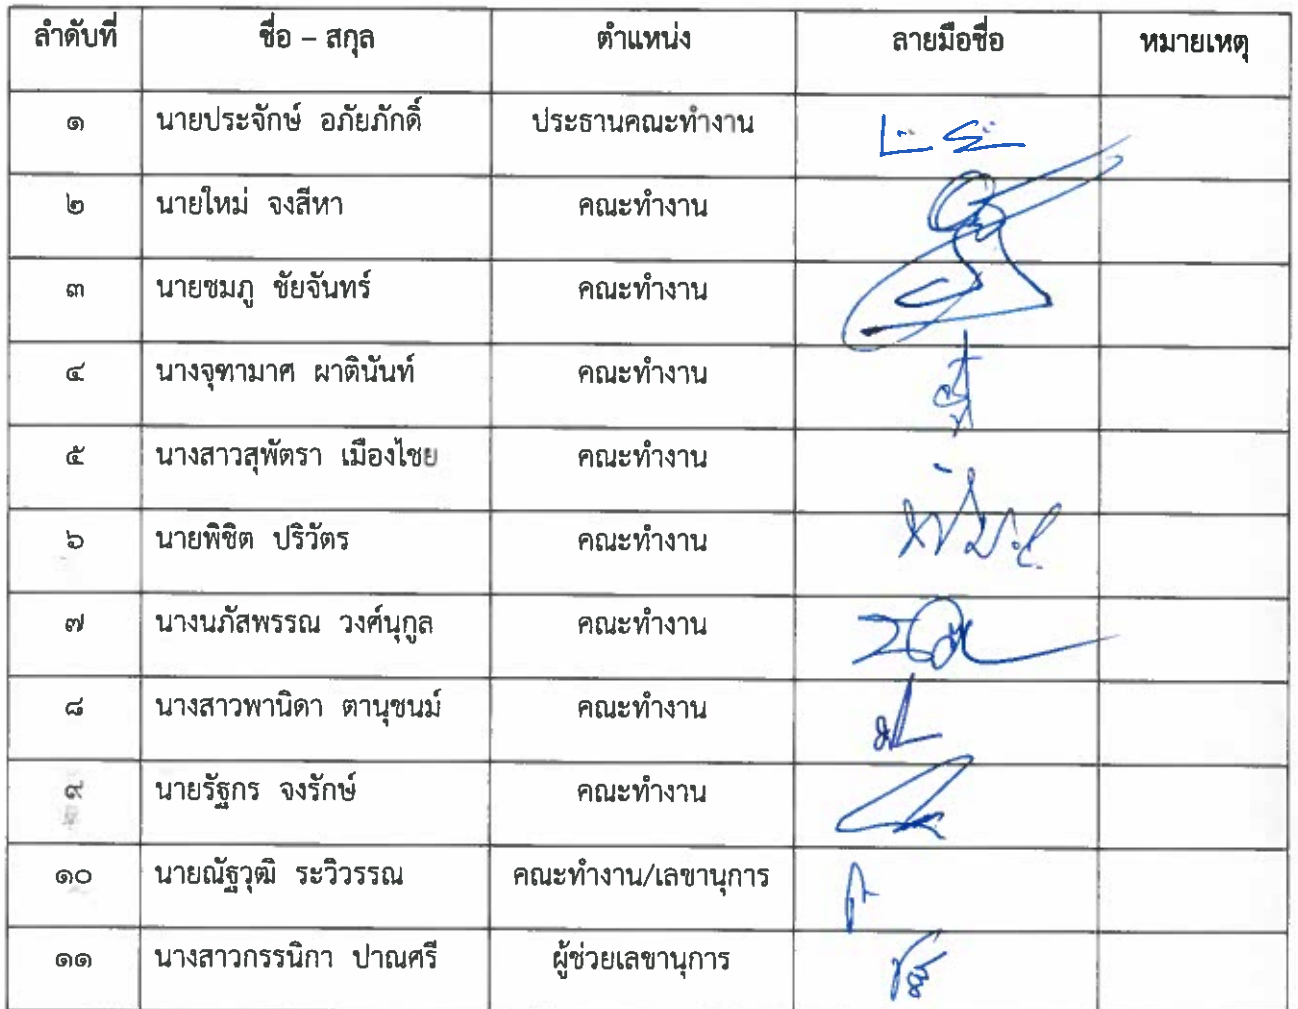 ลำดับที่ ชื่อ – สกุล ตำแหน่ง ลายมือชื่อ หมายเหตุ
๑ นายประจักษ์ อภัยภักดิ์ ประธานคณะทำงาน
๒ นายใหม่ จงสีหา คณะทำงาน
๓ นายชมภู ชัยจันทร์ คณะทำงาน
๔ นางจุฑามาศ ผาตินันท์ คณะทำงาน
๕ นางสาวสุพัตรา เมืองไชย คณะทำงาน
๖ นายพิชิต ปริวัตร คณะทำงาน
๗ นางนภัสพรรณ วงศ์นุกูล คณะทำงาน
๘ นางสาวพานิดา ตานุชนม์ คณะทำงาน
๙ นายรัฐกร จงรักษ์ คณะทำงาน
๑๐ นายณัฐวุฒิ ระวิวรรณ คณะทำงาน/เลขานุการ
๑๑ นางสาวกรรนิกา ปาณศรี ผู้ช่วยเลขานุการ